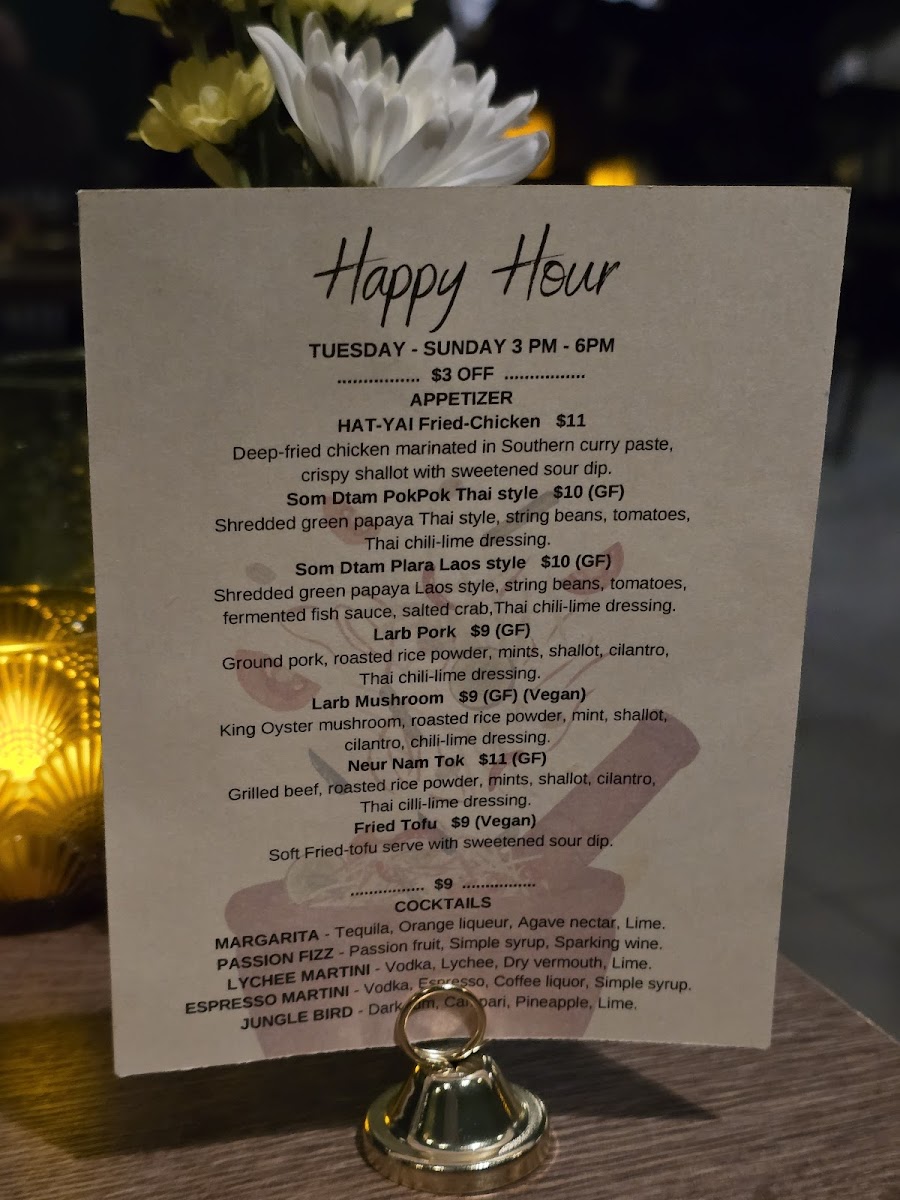 Happy Hour
TUESDAY - SUNDAY 3 PM - 6PM
................ $3 OFF ................
APPETIZER
HAT-YAI Fried-Chicken $11
Deep-fried chicken marinated in Southern curry paste,
crispy shallot with sweetened sour dip.
Som Dtam PokPok Thai style $10 (GF)
Shredded green papaya Thai style, string beans, tomatoes,
Thai chili-lime dressing.
Som Dtam Plara Laos style $10 (GF)
Shredded green papaya Laos style, string beans, tomatoes,
fermented fish sauce, salted crab,Thai chili-lime dressing.
Larb Pork $9 (GF)
Ground pork, roasted rice powder, mints, shallot, cilantro,
Thai chili-lime dressing.
Larb Mushroom $9 (GF) (Vegan)
King Oyster mushroom, roasted rice powder, mint, shallot,
cilantro, chili-lime dressing.
Neur Nam Tok $11 (GF)
Grilled beef, roasted rice powder, mints, shallot, cilantro,
Thai cilli-lime dressing.
Fried Tofu $9 (Vegan)
Soft Fried-tofu serve with sweetened sour dip.
................ $9 ................
COCKTAILS
MARGARITA - Tequila, Orange liqueur, Agave nectar, Lime.
PASSION FIZZ - Passion fruit, Simple syrup, Sparking wine.
LYCHEE MARTINI - Vodka, Lychee, Dry vermouth, Lime.
ESPRESSO MARTINI - Vodka, Espresso, Coffee liquor, Simple syrup.
JUNGLE BIRD - Dark rum, Campari, Pineapple, Lime.